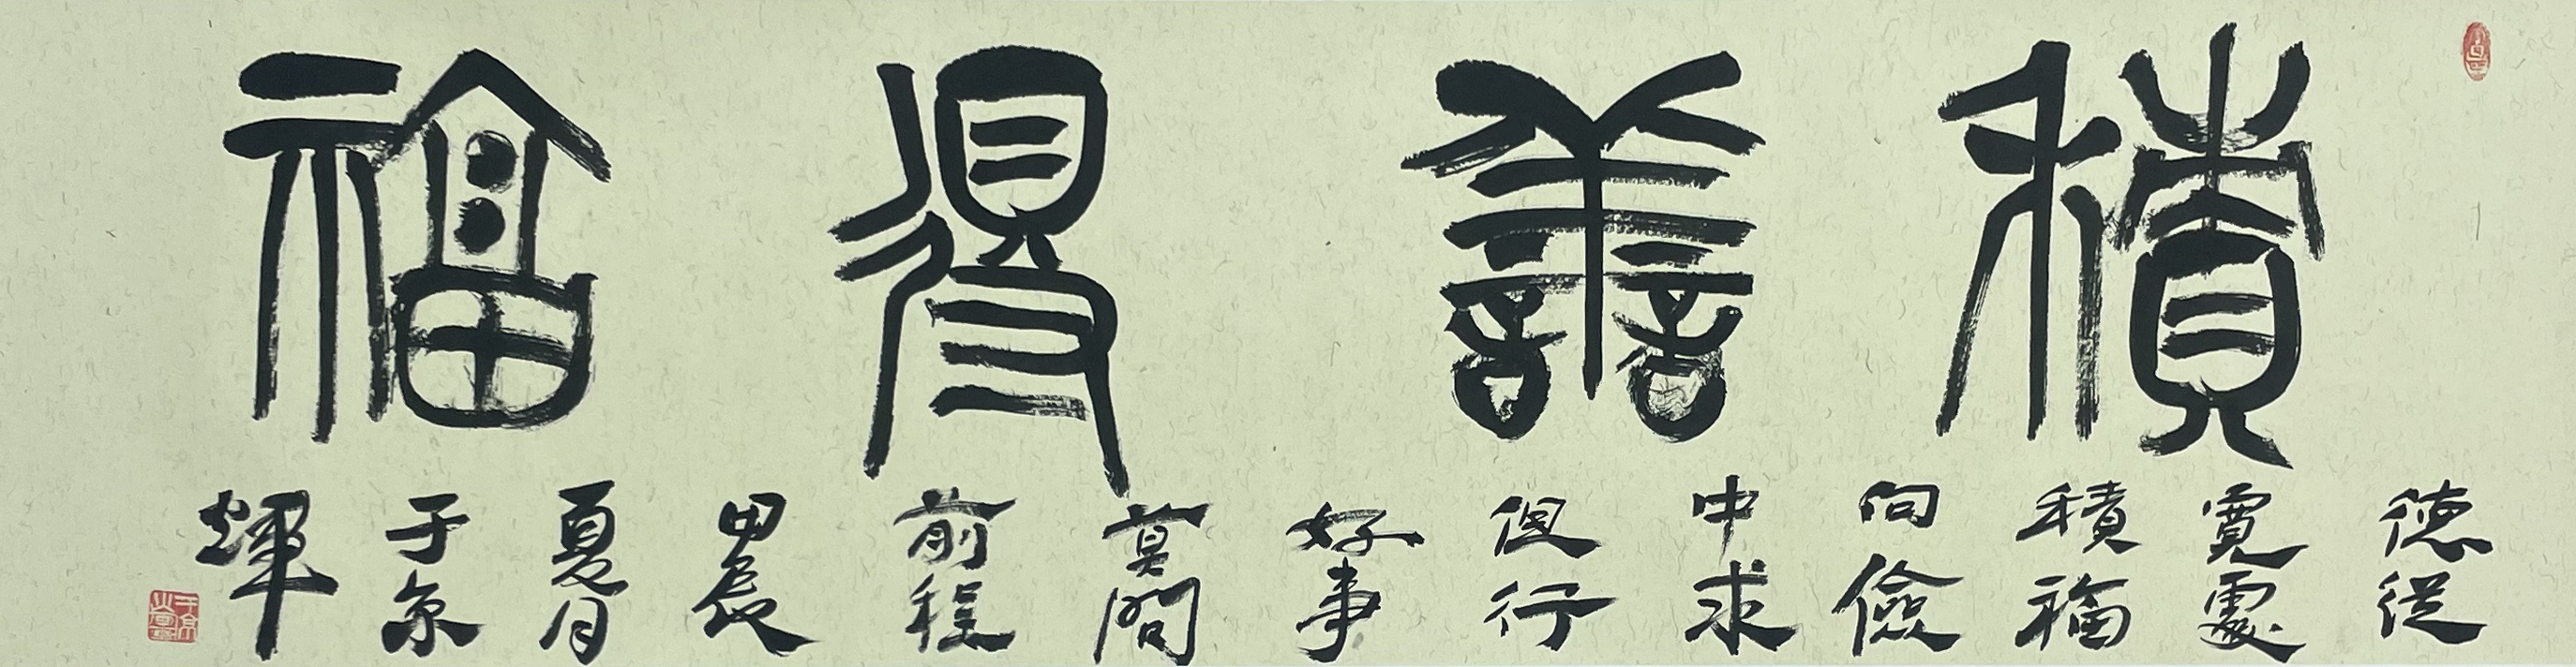 積善得福
德從
寬處
積福
向儉
中求
但行
好事
莫問
前程
甲辰
夏月
于京
輝